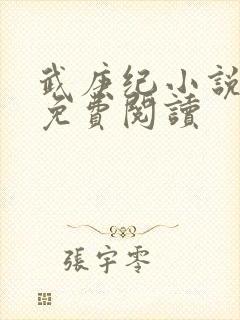 武庚纪小説
免費閱讀
張宇零